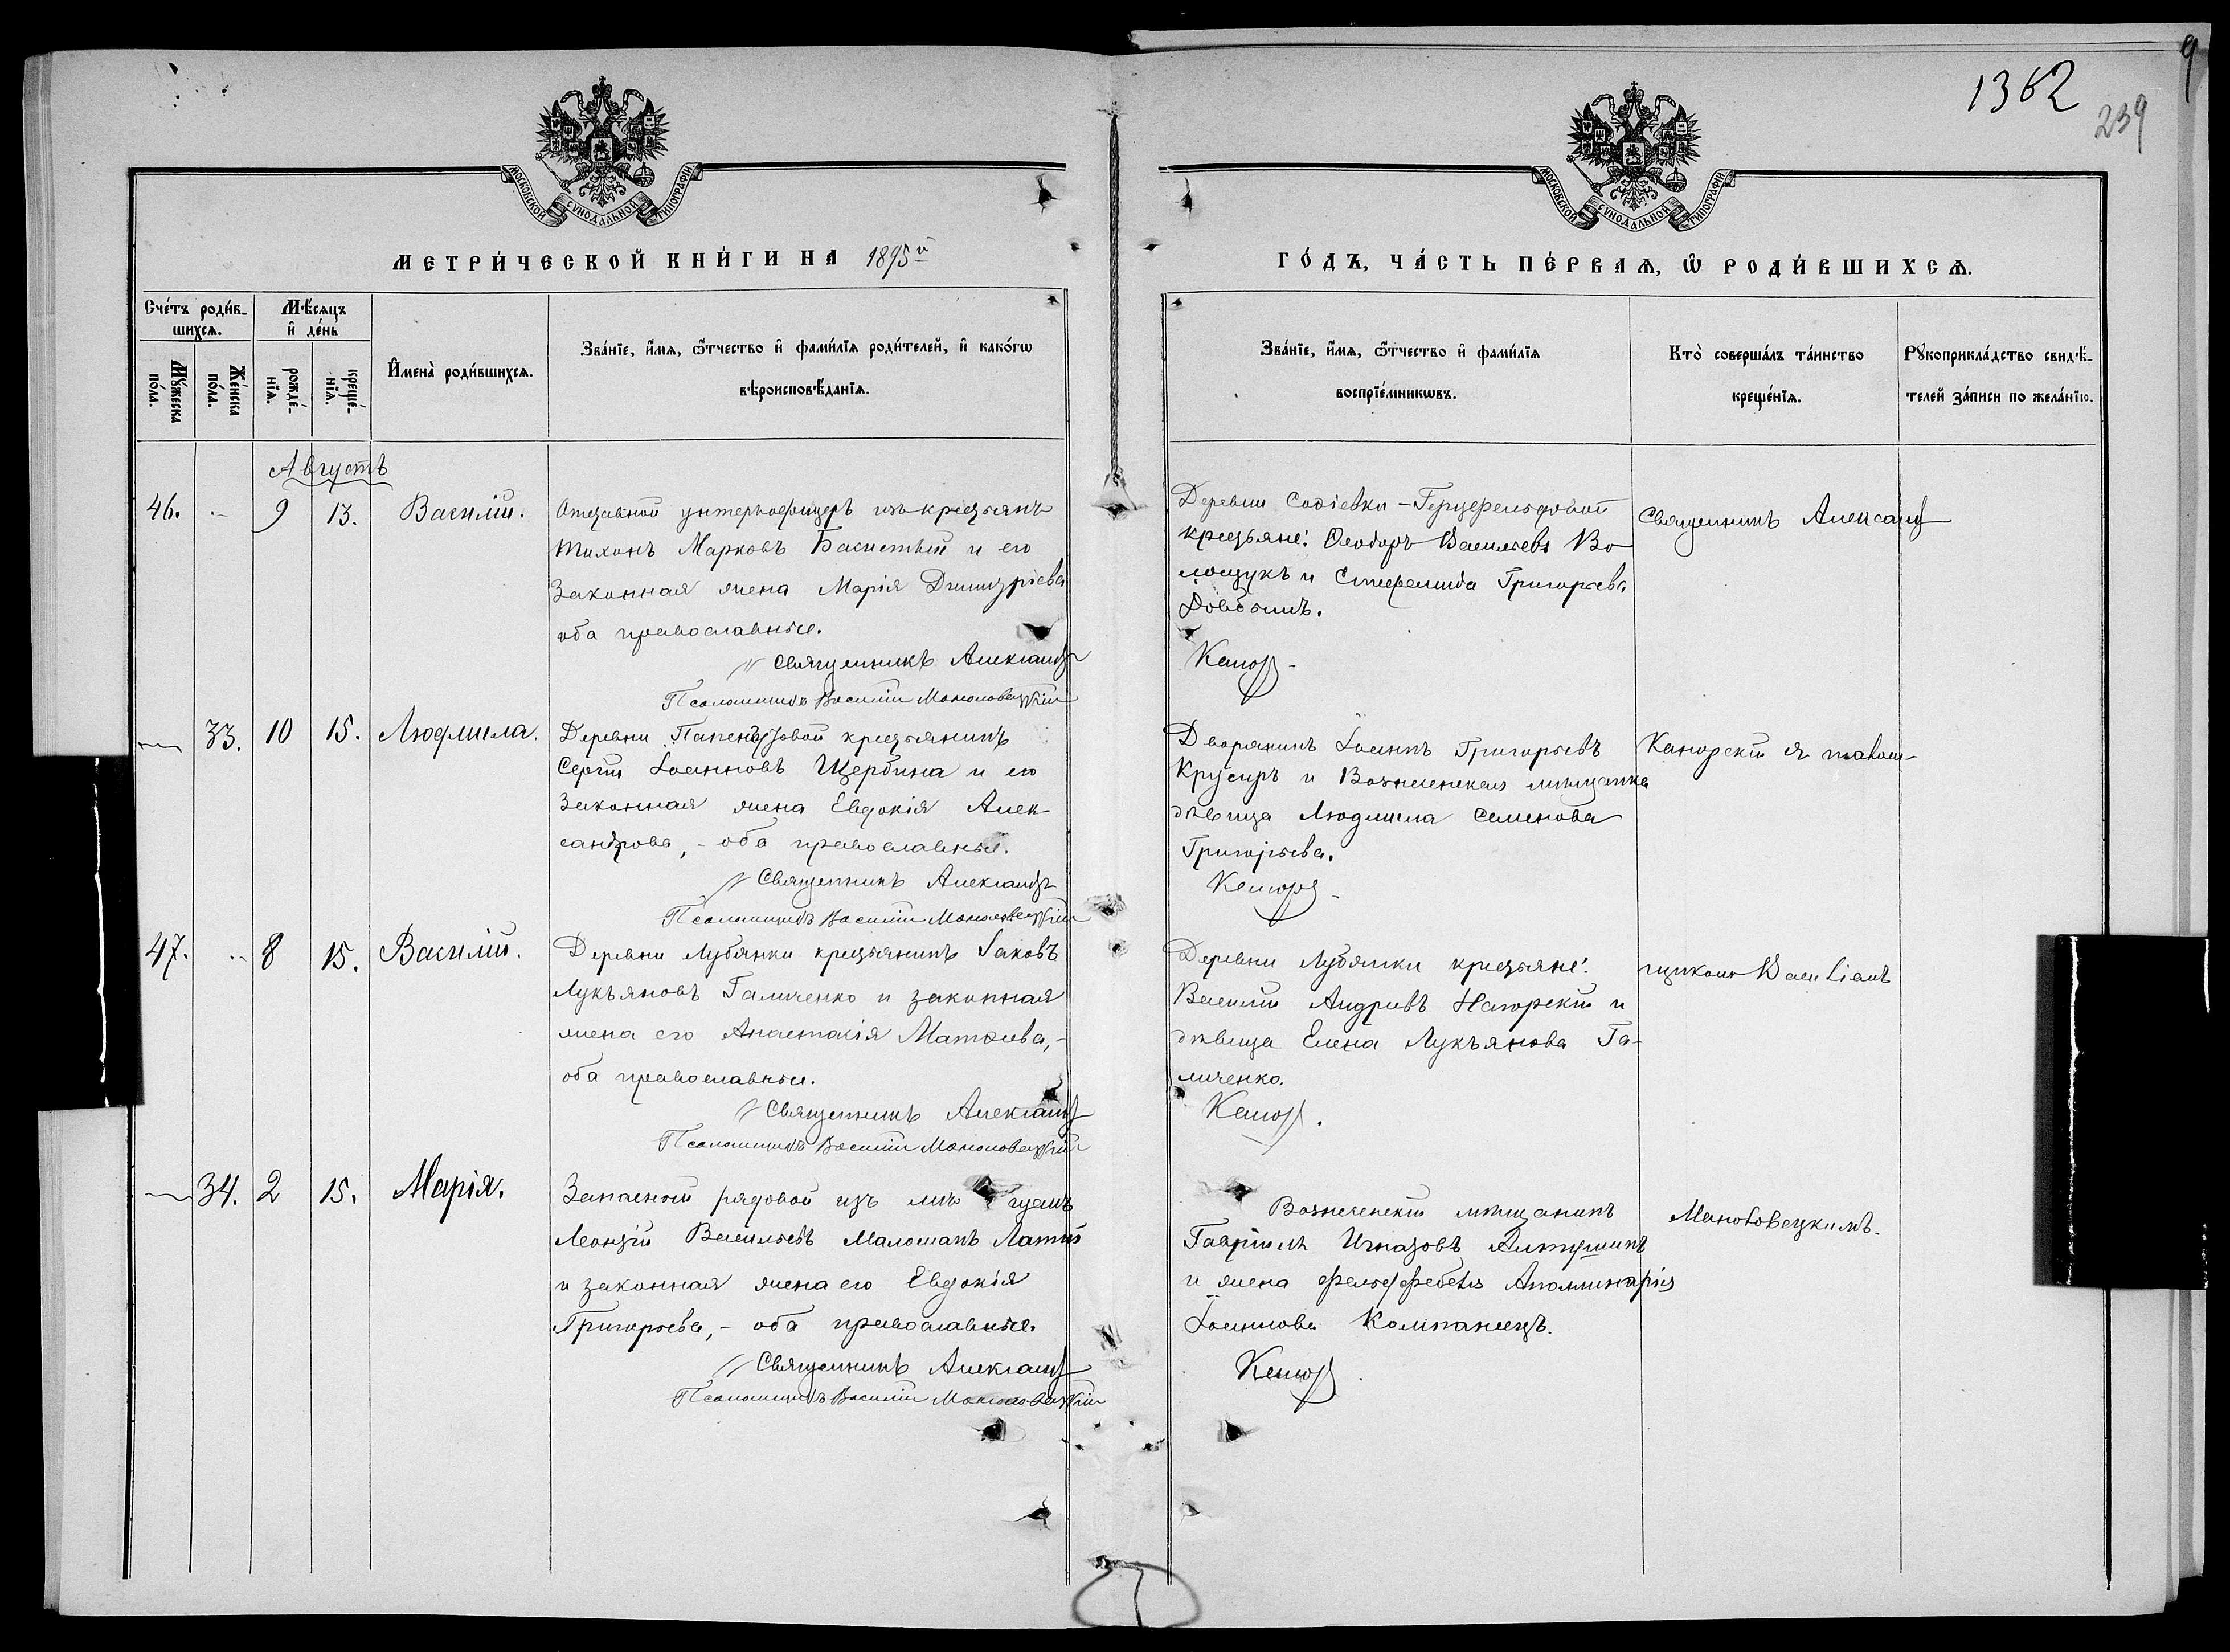 1362
239
9
МОСКОВСКОЙ СѴНОДАЛЬНОЙ ТИПОГРАФІИ
МОСКОВСКОЙ СѴНОДАЛЬНОЙ ТИПОГРАФІИ
МЕТРИ́ЧЕСКОЙ КНИ́ГИ НА 1895й
ГО́ДЪ, ЧА́СТЬ ПЕ́РВАѦ, Ѡ РОДИ́ВШИХСѦ.
Сче́тъ роди́в-
шихсѧ.
Мꙋ́жеска по́ла.
Же́нска по́ла.
Мѣ́сяцъ
и҆ де́нь
рожде́-
нїѧ.
креще́-
нїѧ.
И҆мена̀ роди́вшихсѧ.
Зва́нїе, и҆́мѧ, ѻ҆́тчество и҆ фами́лїѧ роди́телей, и҆ како́гѡ
вѣроисповѣ́данїѧ.
Зва́нїе, и҆́мѧ, ѻ҆́тчество и҆ фами́лїѧ
воспрїе́мникѡвъ.
Кто̀ соверша́лъ та́инство
креще́нїѧ.
Рꙋкоприкла́дство свидѣ́-
телей за́писи по жела́нїю.
Августъ
46.
9
13.
Василій.
Отставной унтеръ-офицеръ изъ крестьянъ
Тихонъ Марковъ Басистый и его
законная жена Марія Димитріева
оба православные.
Священникъ Александр
Псаломщикъ Василій Маньковецкій
Деревни Софіевки-
крестьяне: Ѳеодоръ Васильевъ Во-
лощукъ и Стефанида Григорьева
Довбышъ.
Канор
Священникъ Александ
33.
10
15.
Людмила.
Деревни крестьянинъ
Сергій Іоанновъ Щербина и его
законная жена Евдокія Алек-
сандрова, - оба православные.
Священникъ Александр
Псаломщикъ Василій Маньковецкій
Дворянинъ Іоаннъ Григорьевъ
Крусиръ и Вознесенская мѣщанка
дѣвица Людмила Семенова
Григорьева.
Канор
47.
8
15.
Василій.
Деревни Лубянки крестьянинъ Іаковъ
Лукъяновъ Галиченко и законная
жена его Анастасія Матѳіева, -
оба православные.
Священникъ Александ
Псаломщикъ Василій Маньковецкій
Деревни Лубянки крестьяне:
Василій Андреевъ Нагорскій и
дѣвица Елена Лукъянова Га-
личенко.
Канор
щикомъ Василіемъ
34.
2
15.
Марія.
Запасной рядовой изъ мѣщанъ
Леонтій Васильевъ
и законная жена его Евдокія
Григорьева, - оба православные.
Священникъ Александ
Псаломщикъ Василій Маньковецкій
Вознесенскій мѣщанинъ
Гавріилъ
и жена фельдфебеля Аполлинарія
Іоаннова Компанеецъ.
Канор
Маньковецкимъ.